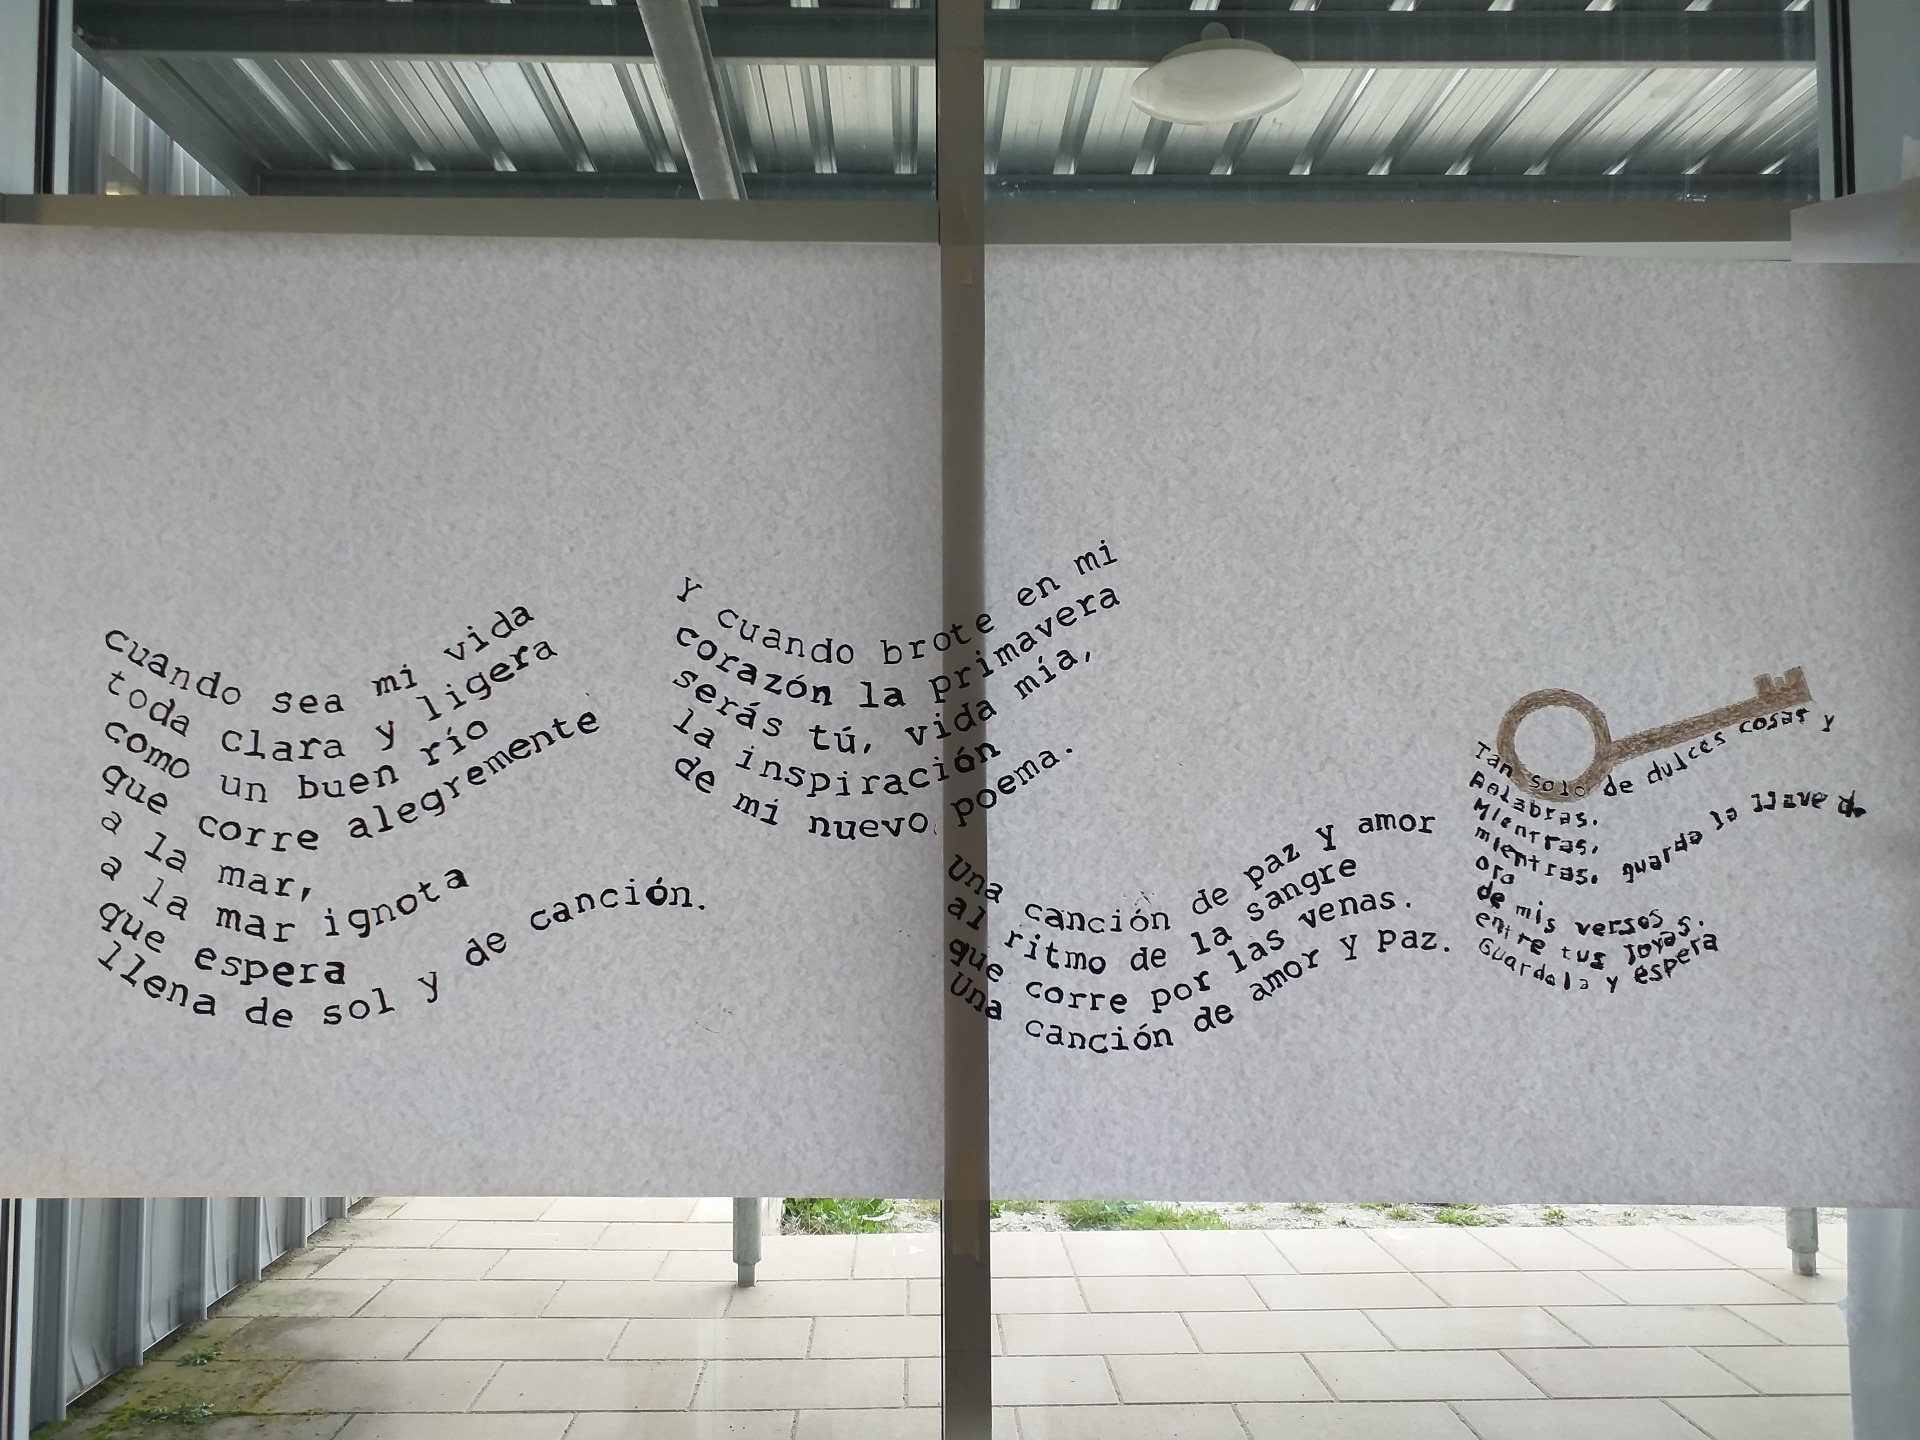 cuando sea mi vida
toda clara y ligera
como un buen río
que corre alegremente
a la mar,
a la mar ignota
que espera
llena de sol y de canción.
Y cuando brote en mi
corazón la primavera
serás tú, vida mía,
la inspiración
de mi nuevo poema.
Una canción de paz y amor
al ritmo de la sangre
que corre por las venas.
Una canción de amor y paz.
Tan solo de dulces cosas y
Palabras.
Mientras,
mientras, guarda la llave de
oro
de mis versos
entre tus joyas.
Guardala y espera